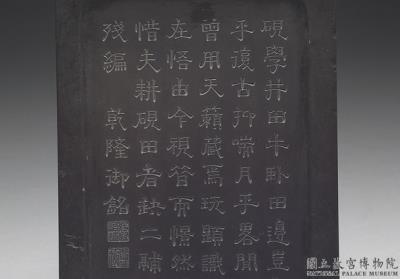 硯學井田牛卧田邊豈
乎復古抑喘月乎畧聞
曾用天籟藏焉玩題識
在悟由今視昔而憬然
惜夫耕硯田者缺二補
殘編 乾隆御銘
國立故宮博物院
NATIONAL PALACE MUSEUM